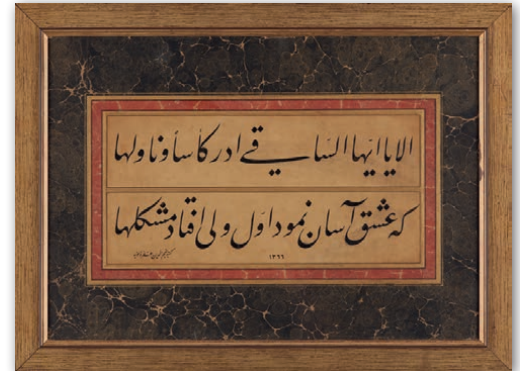 الا یا ایها الساقے ادر کأسا و ناولها
که عشق آسان نمود اول ولی افتاد مشکلها
١٣٦٦